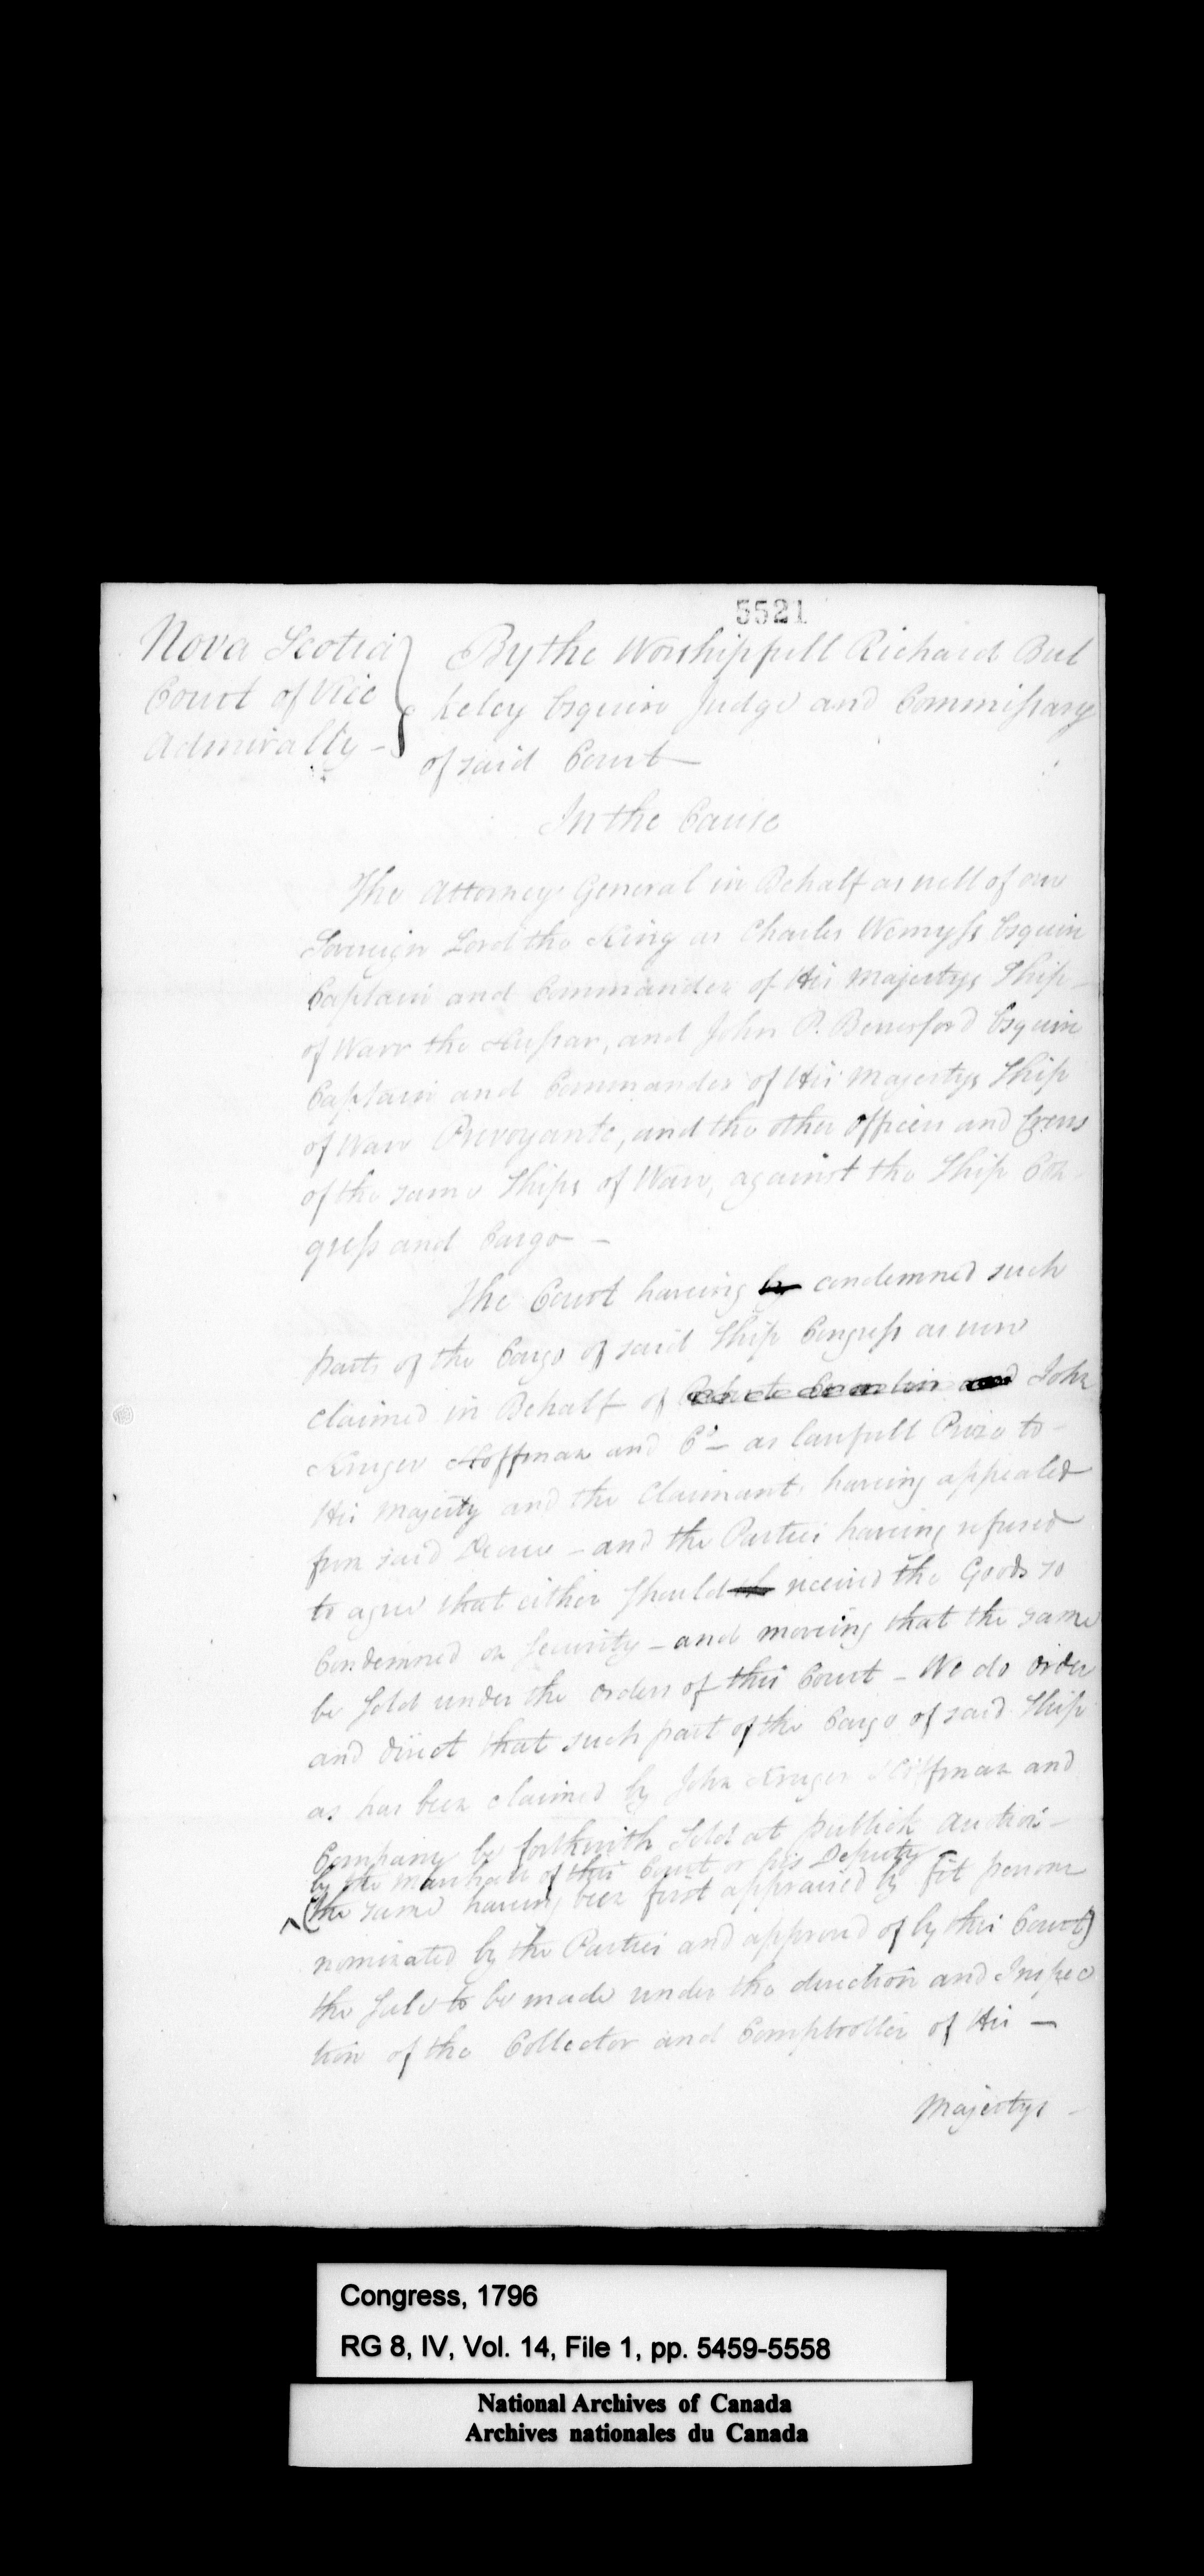 5521
Nova Scotia
Court of Vice
Admiralty -
By the Worshippfull Richard Bul
keley Esquire Judge and Commissary
of said Court
In the Cause
The Attorney General in Behalf as well of our
Sovereign Lord the King as Charles Wemyss Esquire
Captain and Commander of His Majestys Ship
of Warr the Hussar, and John P. Berresford Esquire
Captain and Commander of His Majestys Ship
of Warr Prevoyante, and the other Officers and Crews
of the same Ships of Warr, against the Ship Con
gress and Cargo -
The Court having by condemned such
parts of the Cargo of said Ship Congress as were
claimed in Behalf of and John
Kruger Hoffman and Co - as lawfull Prize to
His Majesty and the Claimants having appealed
from said Decree - and the Parties having refused
to agree that either should th received the Goods so
Condemned on Security - and moveing that the same
be Sold under the orders of this Court - We do order
and direct that such part of the Cargo of said Ship
as has been claimed by John Kruger Hoffman and
Company be forthwith Sold at publick Auction -
by the Marshall of this Court or his Deputy
(the same having been first appraised by fit persons
nominated by the Parties and approved of by this Court)
the Sale to be made under the direction and Inspec
tion of the Collector and Comptroller of His -
Majestys -
Congress, 1796
RG 8, IV, Vol. 14, File 1, pp. 5459-5558
National Archives of Canada
Archives nationales du Canada